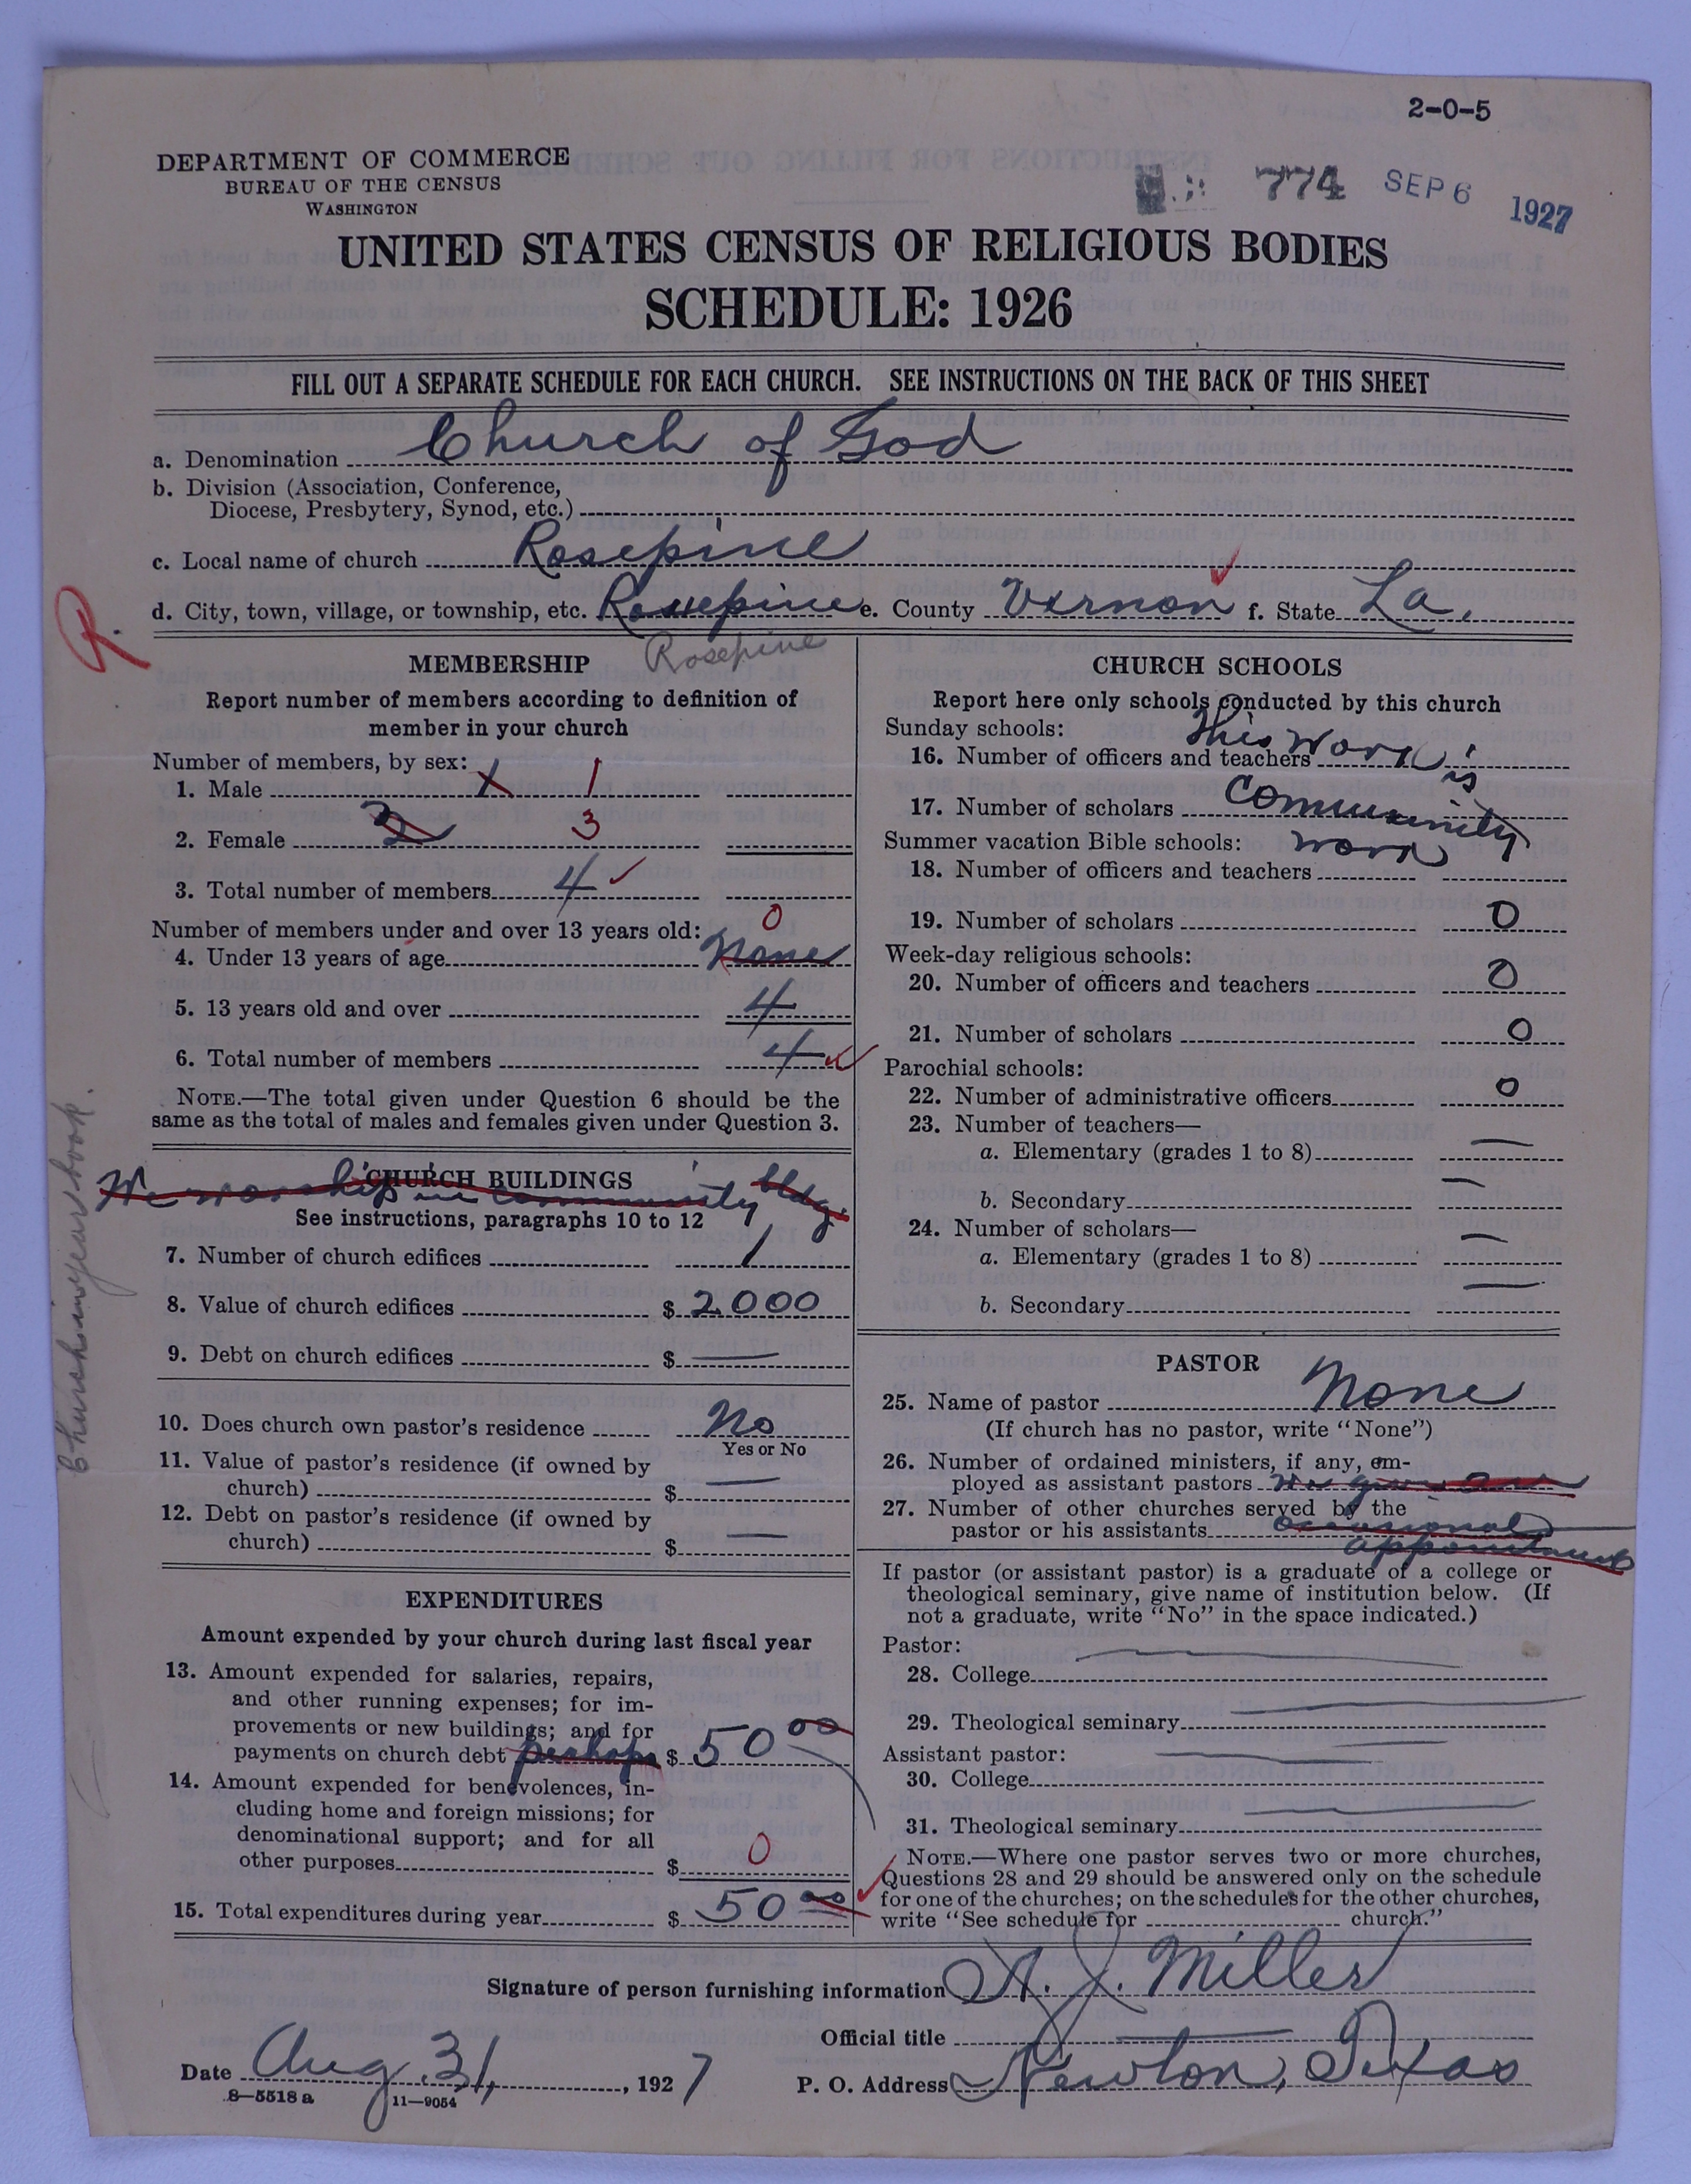 2-0-5
DEPARTMENT OF COMMERCE
BUREAU OF THE CENSUS
WASHINGTON
774 SEP 6 1927
UNITED STATES CENSUS OF RELIGIOUS BODIES
SCHEDULE: 1926
FILL OUT A SEPARATE SCHEDULE FOR EACH CHURCH. SEE INSTRUCTIONS ON THE BACK OF THIS SHEET
a. Denomination Church of God
b. Division (Association, Conference,
Diocese, Presbytery, Synod, etc.)
c. Local name of church Rosepine
R.
d. City, town, village, or township, etc. Rosepine e. County Vernon f. State La.
Rosepine
MEMBERSHIP
Report number of members according to definition of
member in your church
Number of members, by sex:
1. Male 1 1
2. Female 3 3
3. Total number of members 4
Number of members under and over 13 years old: 0
4. Under 13 years of age None
5. 13 years old and over 4
6. Total number of members 4
NOTE.—The total given under Question 6 should be the
same as the total of males and females given under Question 3.
CHURCH BUILDINGS
We worship in community bldg.
See instructions, paragraphs 10 to 12
7. Number of church edifices 1
8. Value of church edifices $ 2000
9. Debt on church edifices $ —
10. Does church own pastor's residence No
Yes or No
11. Value of pastor's residence (if owned by
church) $ —
12. Debt on pastor's residence (if owned by
church) $ —
EXPENDITURES
Amount expended by your church during last fiscal year
13. Amount expended for salaries, repairs,
and other running expenses; for im-
provements or new buildings; and for
payments on church debt perhaps $ 50 00
14. Amount expended for benevolences, in-
cluding home and foreign missions; for
denominational support; and for all
other purposes $ 0
15. Total expenditures during year $ 50 00
CHURCH SCHOOLS
Report here only schools conducted by this church
Sunday schools: This work
16. Number of officers and teachers is
17. Number of scholars community
Summer vacation Bible schools: work
18. Number of officers and teachers
19. Number of scholars 0
Week-day religious schools:
20. Number of officers and teachers 0
21. Number of scholars 0
Parochial schools:
22. Number of administrative officers 0
23. Number of teachers—
a. Elementary (grades 1 to 8) —
b. Secondary —
24. Number of scholars—
a. Elementary (grades 1 to 8) —
b. Secondary —
PASTOR
25. Name of pastor None
(If church has no pastor, write "None")
26. Number of ordained ministers, if any, em-
ployed as assistant pastors
27. Number of other churches served by the
pastor or his assistants occasional
appointments
If pastor (or assistant pastor) is a graduate of a college or
theological seminary, give name of institution below. (If
not a graduate, write "No" in the space indicated.)
Pastor:
28. College —
29. Theological seminary —
Assistant pastor:
30. College —
31. Theological seminary —
NOTE.—Where one pastor serves two or more churches,
Questions 28 and 29 should be answered only on the schedule
for one of the churches; on the schedules for the other churches,
write "See schedule for church."
Signature of person furnishing information A. J. Miller
Official title —
Date Aug. 31, 1927 P. O. Address Newton, Texas
8—5518 a 11—9054
Church in yearbook.